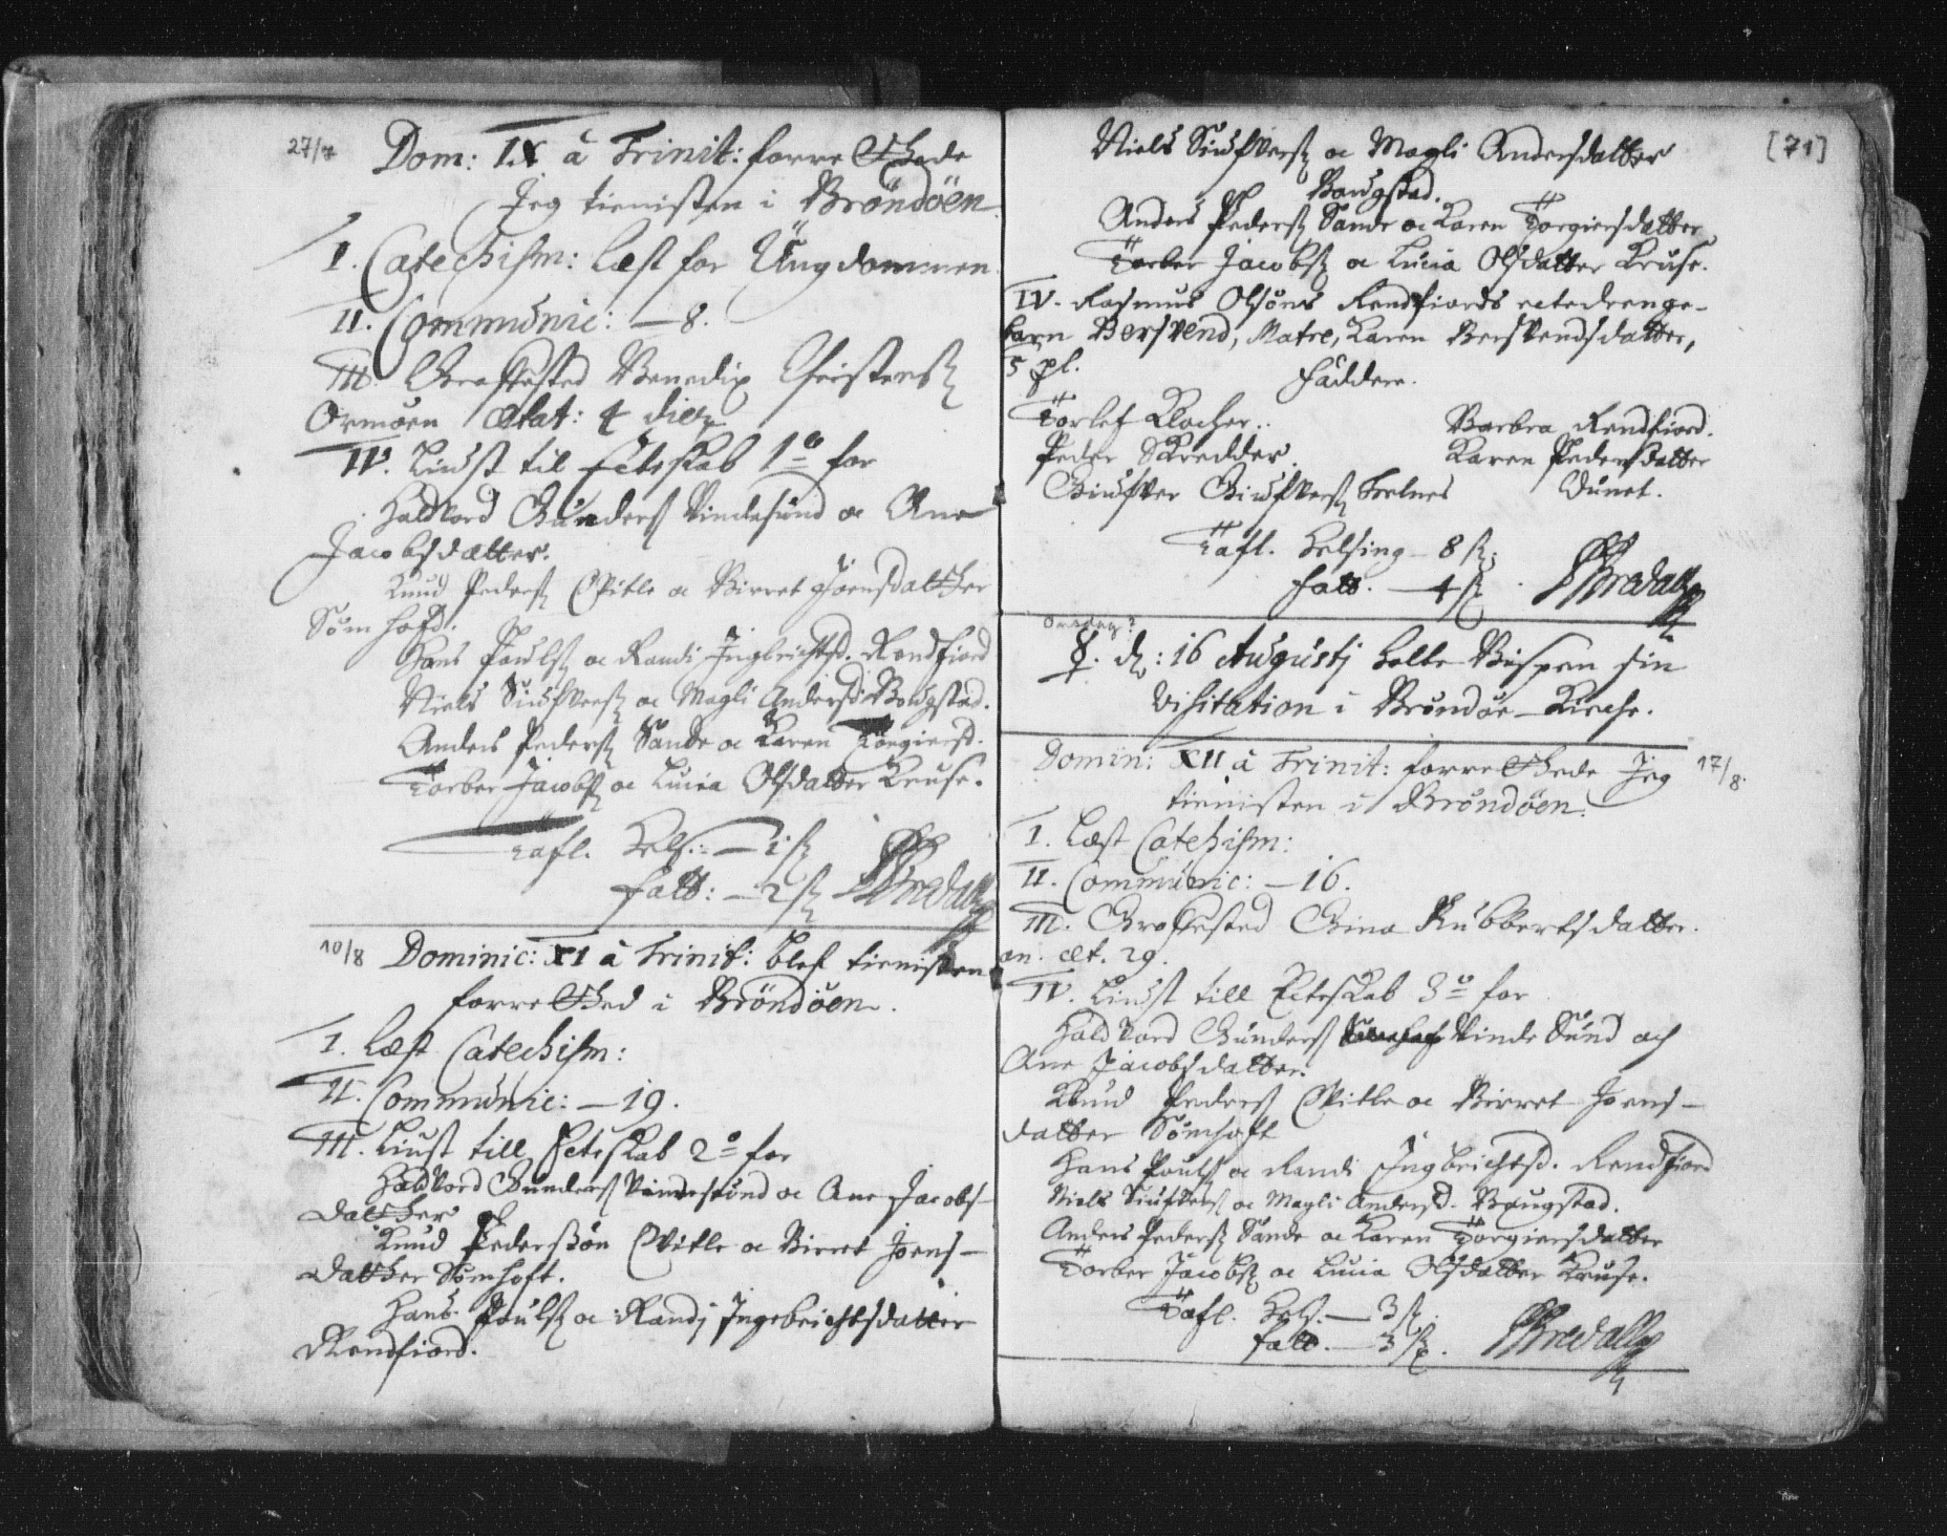 27/7 Dom: IX â Trinit: forrettede
Jeg tienisten i Brøndöen
I. Catechism: læst for Ungdommen
II. Communic: — 8.
III. Græffested Benedix Christens.
Ormöen Ætat: 4 dier.
IV. Liust til Ecteskab 1º for
Haldvord Gunders. Vindesund oc Ane
Jacobsdatter.
Knud Peders. Qvitle oc Birret Joensdatther
Sømhoft.
Hans Pouls. oc Randi Ingbrichtsd. Rendfiord
Niels Siufvers. oc Magli Andersd. Bougstad.
Anders Peders. Sande oc Karen Torgiersd.
Torber Jacobs. oc Lucia Olsdatter Kruse.
Tafl. Hels: — 1 s.
fatt: — 2 s.
10/8 Dominic: XI â Trinit: blef tienisten
forretthed i Bröndöen.
I. læst Catechism:
II. Communic: — 19.
III. Liust till Ecteskab 2º for
Haldvord Gunders. Vindesund oc Ane Jacobs-
datther
Knud Pedersön Qvitle oc Birret Joens-
datther Sømhoft.
Hans Pouls. oc Randj Ingebrichtsdatter
Rendfiord.
[71]
Niels Siufvers. oc Magli Andersdatter
Bougstad.
Anders Peders. Sande oc Karen Torgiersdatter
Torber Jacobs. oc Lucia Olsdatter Kruse.
IV. Rasmus Olsöns Rendfiords ectedrenge-
barn Bersvend, Matre, Karen Bersvendsdatter,
5 pl.
Faddere.
Torlef Klocher. Barbra Rendfiord.
Peder Skredder. Karen Pedersdatter
Giufver Giufvers. Trelnes Dunet.
Tafl. Helsing — 8 s.
fatt. — 4 s.
Onsdag?
☿. d. 16 Augustj holte Bispen sin
Visitation i Brøndøe Kirche.
Domin: XII â Trinit: forrettede Jeg 17/8.
tienisten i Brøndöen.
I. Læst Catechism:
II. Communic: — 16.
III. Græffested Gina Rubbertsdatter.
an. æt. 29.
IV. Liust till Ecteskab 3º for
Haldvord Gunders. Vinde Sund och
Ane Jacobsdatter.
Knud Peders. Qvitle oc Birret Joens-
datter Sømhoft
Hans Pouls. oc Randi Ingbrichtsd. Rendfiord
Niels Siufvers. oc Magli Andersd. Bougstad.
Anders Peders. Sande oc Karen Torgiersdatter
Torber Jacobs. oc Lucia Olsdatter Kruse.
Tafl. Hels. — 3 s.
fatt. — 3 s.